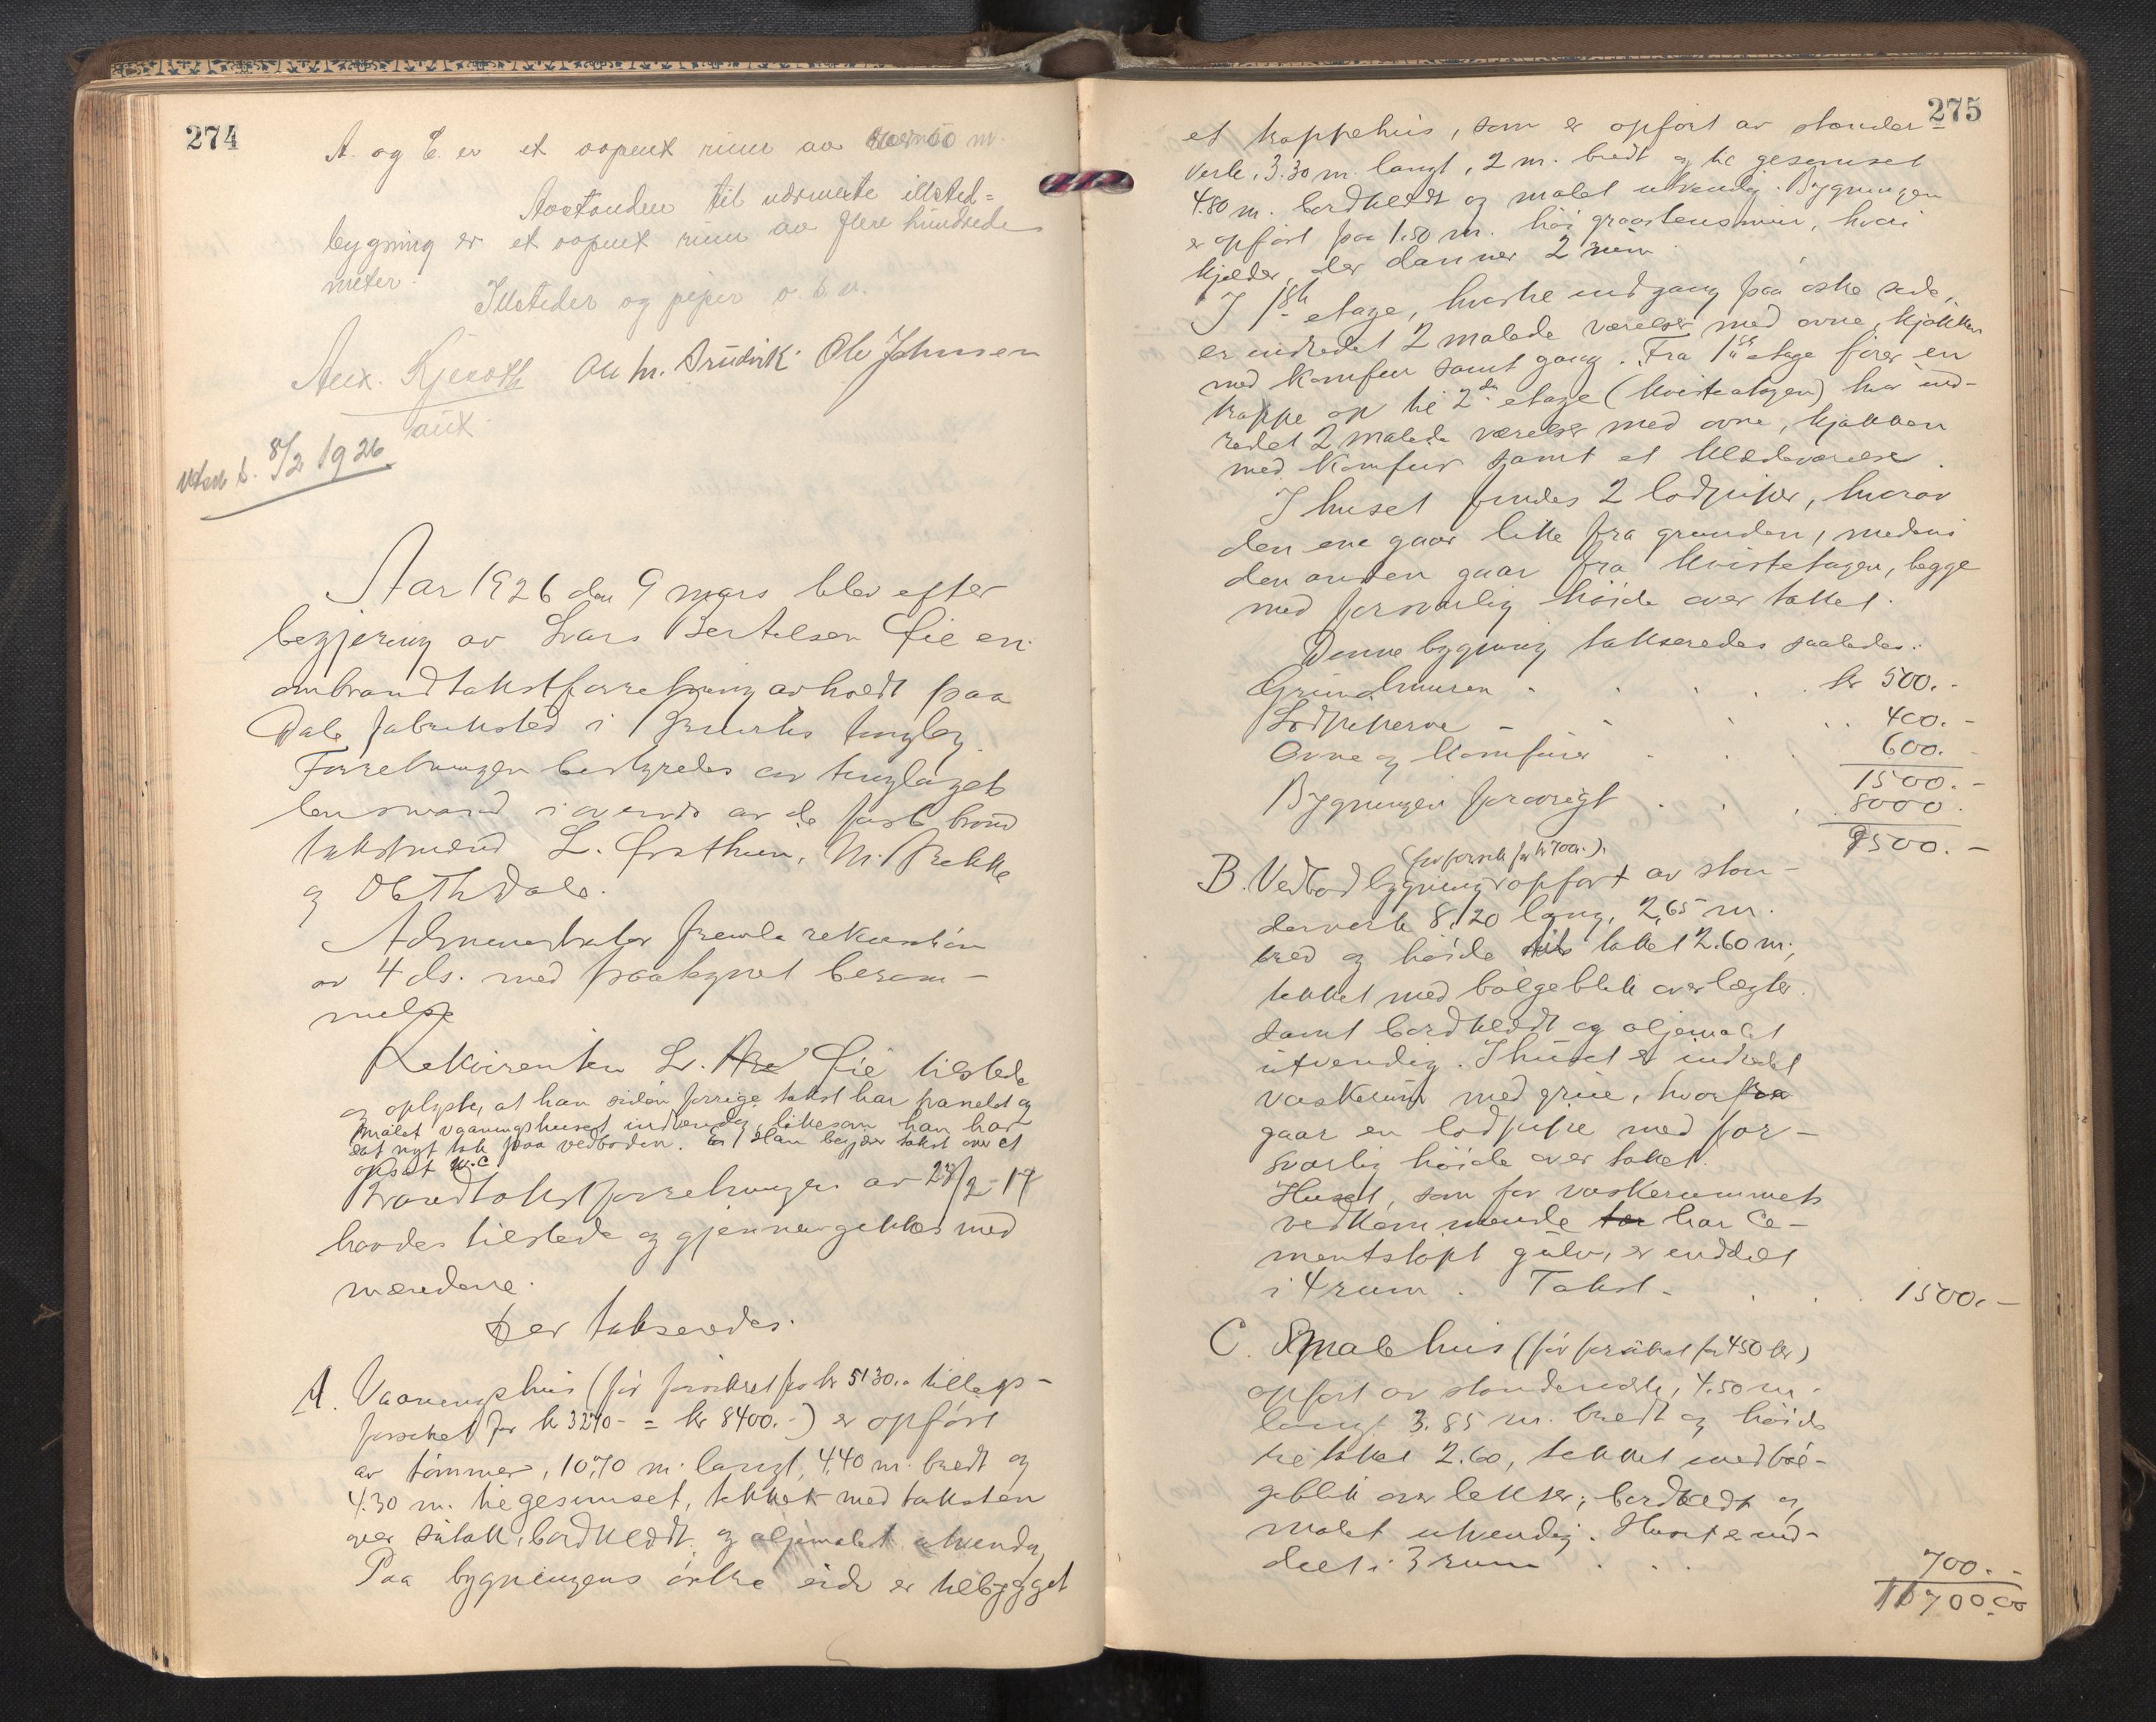 274
A. og C. er et aapent rum av m.
Avstanden til nærmeste illsted=
bygning er et aapent rum av flere hundrede
meter.
Illsteder og piper o. b. v.
Ole Johnsen
aut.
8/2 1926
Aar 1926 den 9 mars blev efter
begjæring av Lars Bertelsen Lie en
ombrandtakstforretning avholdt paa
Dale fabriksted i Bruviks tinglag.
Forretningen bestyredes av tinglagets
lensmand i overvær av de faste brand
takstmænd L. M. Brekke
og Ol. Th. Dale.
Administrator fremla rekvisition
av 4 ds. med paategnet beram-
melse
Rekvirenten L. Lie tilstede
og oplyste, at han siden forrige takst har panelet og
malet vaaningshuset indvendig, likesom han har
sat nyt tak paa vedboden. Han begjær takst over et
opsat W.C.
Brandtakstforretningen av 28/2-17
havdes tilstede og gjennemgikkes med
mændene.
Der takseredes:
A. Vaaningshus (før forsikret for kr 5130.- tillægs-
forsikret for kr 3270- = kr 8400.-) er opført
av tømmer, 10,70 m. langt, 4,40 m. bredt og
4.30 m. til gesimset, tekket med taksten
over sutak, bordklædt og oljemalet utvendig
Paa bygningens østre side er tilbygget
275
et trappehus, som er opført av stender=
verk, 3.30 m. langt, 2 m. bredt og til gesimset
4.80 m. bordklædt og malet utvendig. Bygningen
er opført paa 1.50 m. høi graastensmur, hvori
kjelder, der danner 2 rum.
I 1ste etage, hvortil indgang paa østre side,
er indredet 2 malede værelser med ovne, kjøkken
med komfur samt gang. Fra 1ste etage fører en
trappe op til 2den etage (kvistetagen) hvor ind-
redet 2 malede værelser med ovne, kjøkken
med komfur samt et klædeværelse.
I huset findes 2 lodpiper, hvorav
den ene gaar like fra grunden, medens
den anden gaar fra kvistetagen, begge
med forsvarlig høide over taket.
Denne bygning takseredes saaledes:
Grundmuren . . . . . kr 500.-
Lodpiperne - - . . . 400.-
Ovne og komfurer . . . 600.-
1500.-
Bygningen forøvrigt . . . 8000.
9500.-
(før forsik for kr 700.-).
B. Vedbodbygning opført av sten-
derverk 8,20 lang, 2,65 m.
bred og høide til taket 2.60 m.,
tekket med bølgeblik over lægter.
samt bordklædt og oljemalet
utvendig. I huset er indredet
vaskerum med grue, hvorfra
gaar en lodpipe med for-
svarlig høide over taket.
Huset, som for vaskerummets
vedkommende har ce-
mentstøpt gulv, er inddelt
i 4 rum. Takst. . . . 1500.-
C. Smalehus (før forsikret for 450 kr)
opført av stenderverk, 4.50 m.
langt 3.85 m. bredt og høide
til taket 2.60, tekket med bøl-
geblik over lekter, bordklædt og
malet utvendig. Huset er ind-
delt i 3 rum . . . 700.-
11700.00